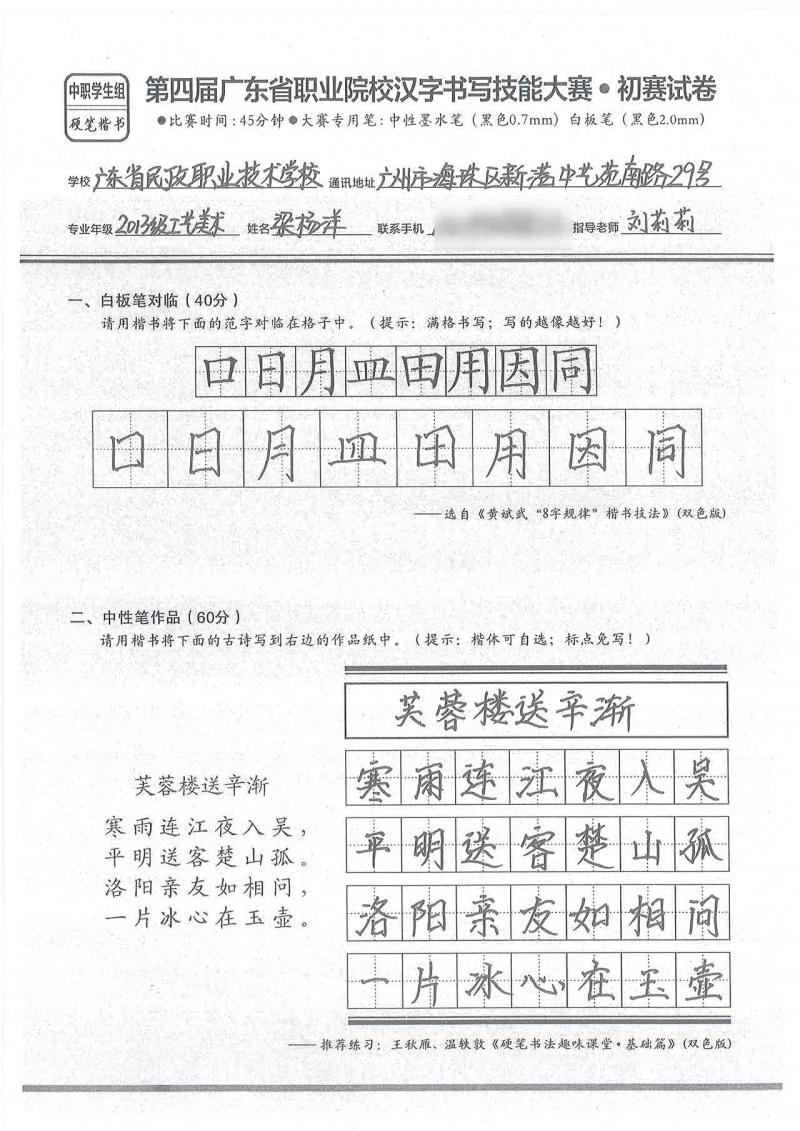 中职学生组
硬笔楷书
第四届广东省职业院校汉字书写技能大赛·初赛试卷
●比赛时间:45分钟●大赛专用笔:中性墨水笔(黑色0.7mm)白板笔(黑色2.0mm)
学校 广东省民政职业技术学校 通讯地址 广州市海珠区新港中艺苑南路29号
专业年级 2013级工艺美术 姓名 梁杨洋 联系手机 指导老师 刘莉莉
一、白板笔对临(40分)
请用楷书将下面的范字对临在格子中。(提示:满格书写;写的越像越好!)
口日月皿田用因同
口日月皿田用因同
——选自《黄斌武“8字规律”楷书技法》(双色版)
二、中性笔作品(60分)
请用楷书将下面的古诗写到右边的作品纸中。(提示:楷体可自选;标点免写!)
芙蓉楼送辛渐
寒雨连江夜入吴,
平明送客楚山孤。
洛阳亲友如相问,
一片冰心在玉壶。
芙蓉楼送辛渐
寒雨连江夜入吴
平明送客楚山孤
洛阳亲友如相问
一片冰心在玉壶
——推荐练习:王秋雁、温轶敦《硬笔书法趣味课堂·基础篇》(双色版)